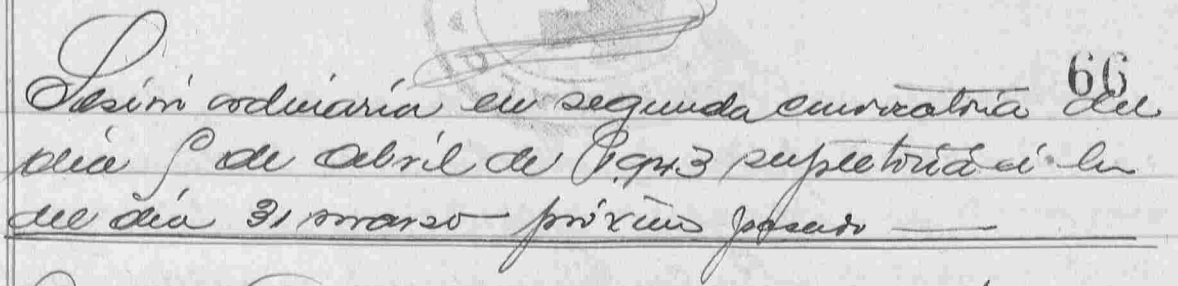 66
Sesión ordinaria en segunda convocatoria del
día de Abril de 1,943 supletoria á la
del día 31 marzo próximo pasado